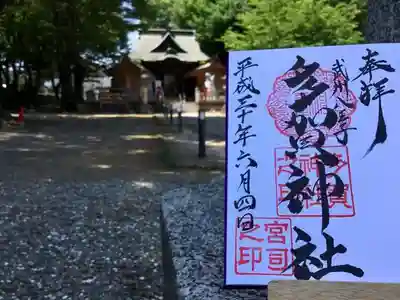 奉拝
武州八王子
多賀神社
平成三十年六月四日
宮司之印